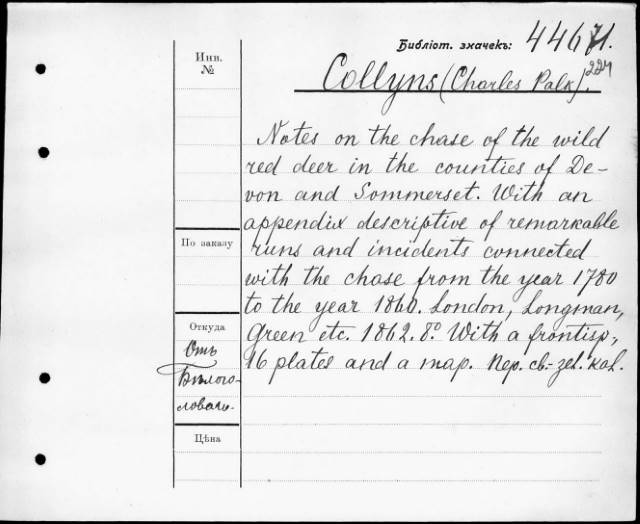 Библіот. значекъ: 44671.
227
Инв.
№
Collyns (Charles Palk).
Notes on the chase of the wild
red deer in the counties of De-
von and Sommerset. With an
appendix descriptive of remarkable
runs and incidents connected
with the chase from the year 1780
to the year 1860. London, Longman,
Green etc. 1862. 8º. With a frontisp.,
16 plates and a map. Пер. св.-зел. кол.
По заказу
Откуда
Отъ
Бѣлого-
Цѣна